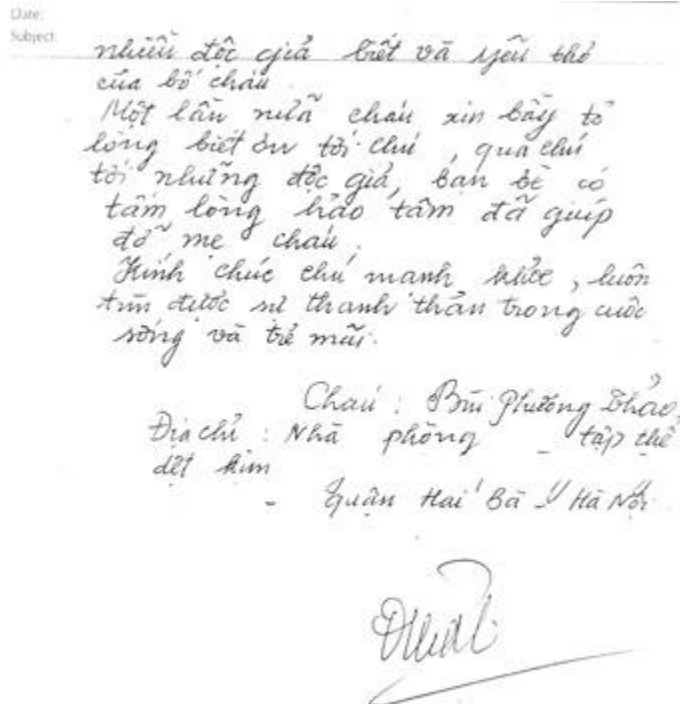 Date:
Subject:
nhiều độc giả biết và yêu thơ
của bố cháu
Một lần nữa cháu xin bày tỏ
lòng biết ơn tới chú, qua chú
tới những độc giả, bạn bè có
tấm lòng hảo tâm đã giúp
đỡ mẹ cháu.
Kính chúc chú mạnh khỏe, luôn
tìm được sự thanh thản trong cuộc
sống và trẻ mãi.
Cháu: Bùi Phương Thảo,
Địa chỉ: Nhà phòng - tập thể
dệt kim
- Quận Hai Bà Hà Nội